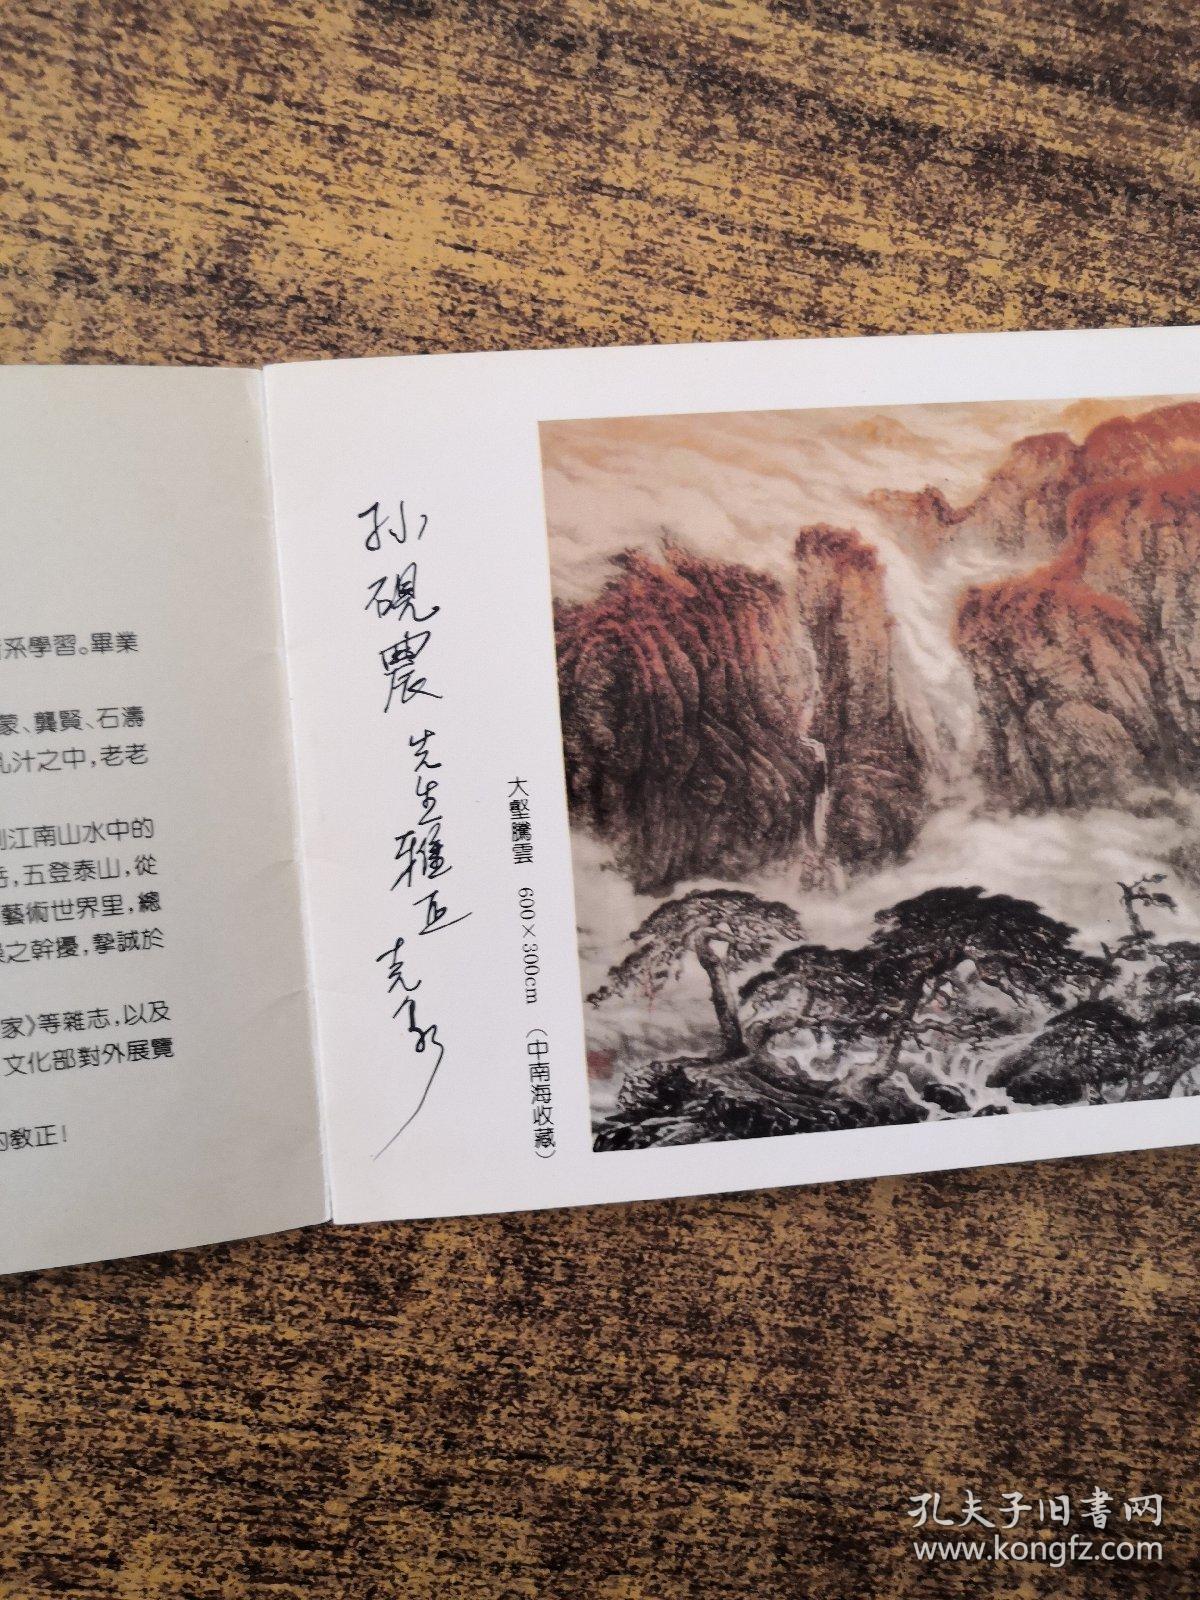 系學習。畢業
蒙、龔賢、石濤
乳汁之中,老老
江南山水中的
岳,五登泰山,從
藝術世界里,總
之幹擾,摯誠於
家》等雜志,以及
文化部對外展覽
的教正!
孫硯農先生雅正
大壑騰雲 600×300cm (中南海收藏)
孔夫子旧書网
www.kongfz.com